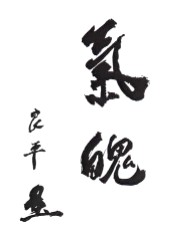 氣魄
良平